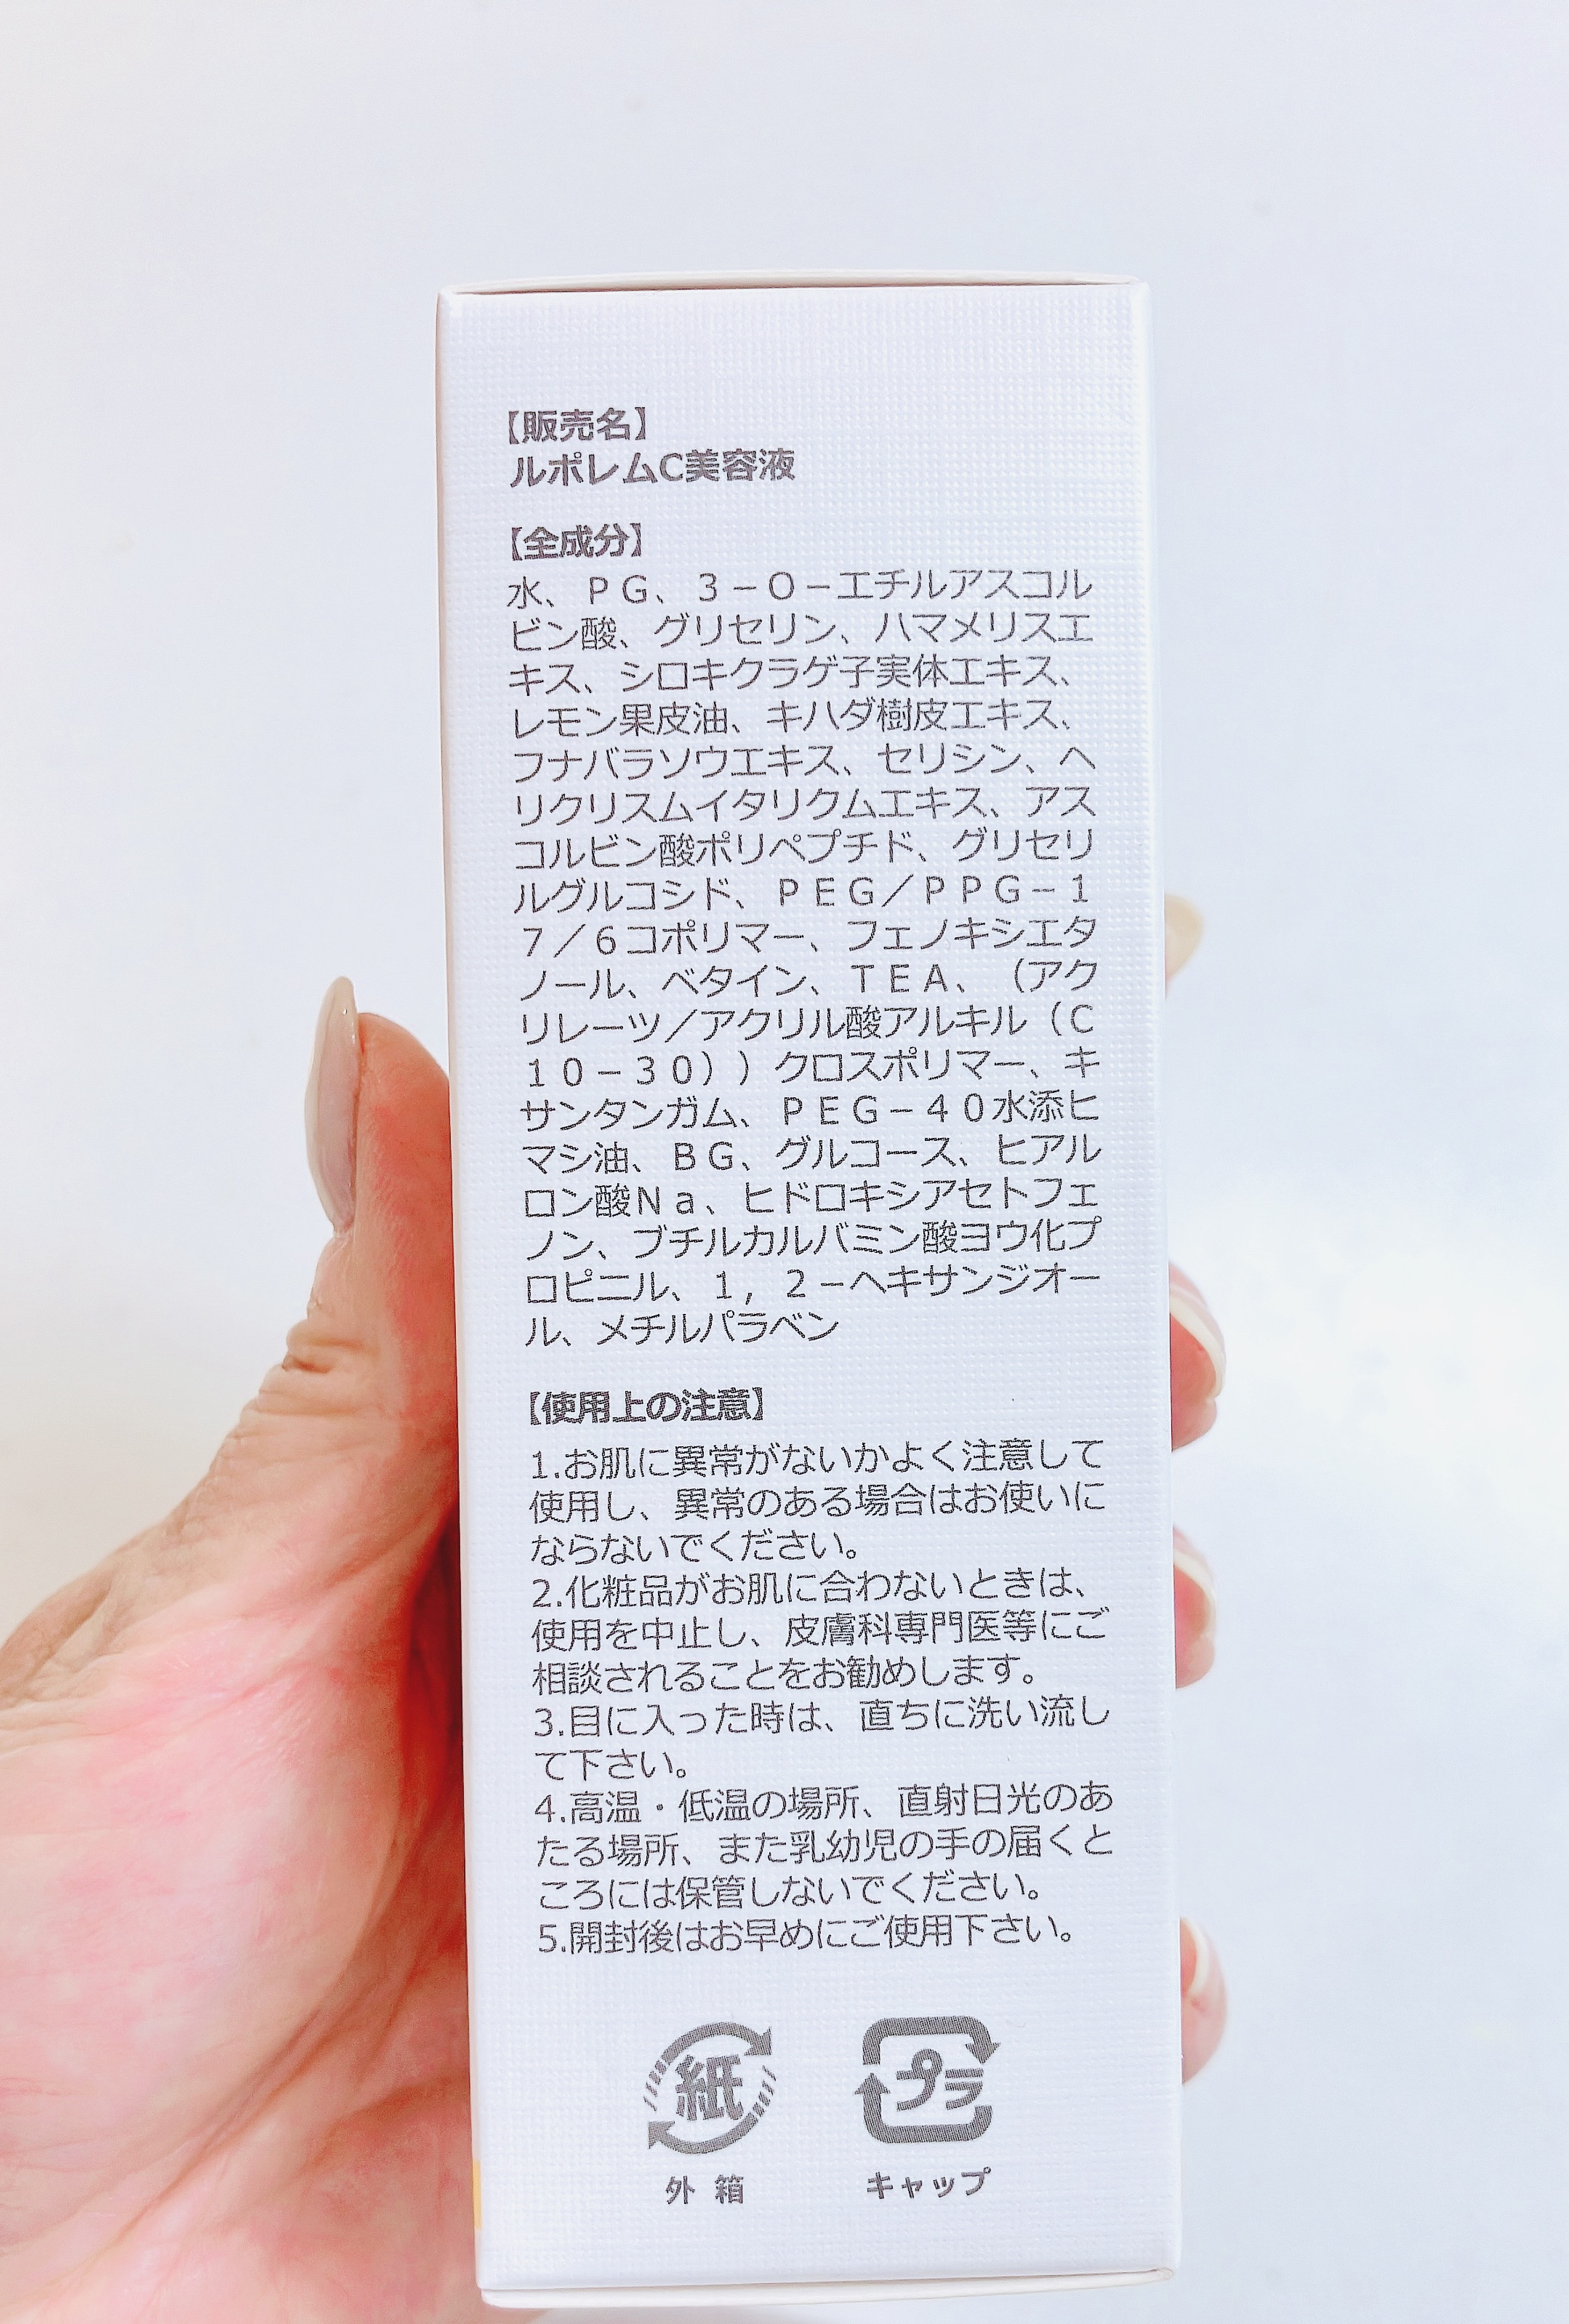 【販売名】
ルポレムC美容液
【全成分】
水、ＰＧ、３－Ｏ－エチルアスコル
ビン酸、グリセリン、ハマメリスエ
キス、シロキクラゲ子実体エキス、
レモン果皮油、キハダ樹皮エキス、
フナバラソウエキス、セリシン、ヘ
リクリスムイタリクムエキス、アス
コルビン酸ポリペプチド、グリセリ
ルグルコシド、ＰＥＧ／ＰＰＧ－１
７／６コポリマー、フェノキシエタ
ノール、ベタイン、ＴＥＡ、（アク
リレーツ／アクリル酸アルキル（Ｃ
１０－３０））クロスポリマー、キ
サンタンガム、ＰＥＧ－４０水添ヒ
マシ油、ＢＧ、グルコース、ヒアル
ロン酸Ｎａ、ヒドロキシアセトフェ
ノン、ブチルカルバミン酸ヨウ化プ
ロピニル、１，２－ヘキサンジオー
ル、メチルパラベン
【使用上の注意】
1.お肌に異常がないかよく注意して
使用し、異常のある場合はお使いに
ならないでください。
2.化粧品がお肌に合わないときは、
使用を中止し、皮膚科専門医等にご
相談されることをお勧めします。
3.目に入った時は、直ちに洗い流し
て下さい。
4.高温・低温の場所、直射日光のあ
たる場所、また乳幼児の手の届くと
ころには保管しないでください。
5.開封後はお早めにご使用下さい。
紙 プラ
外箱 キャップ